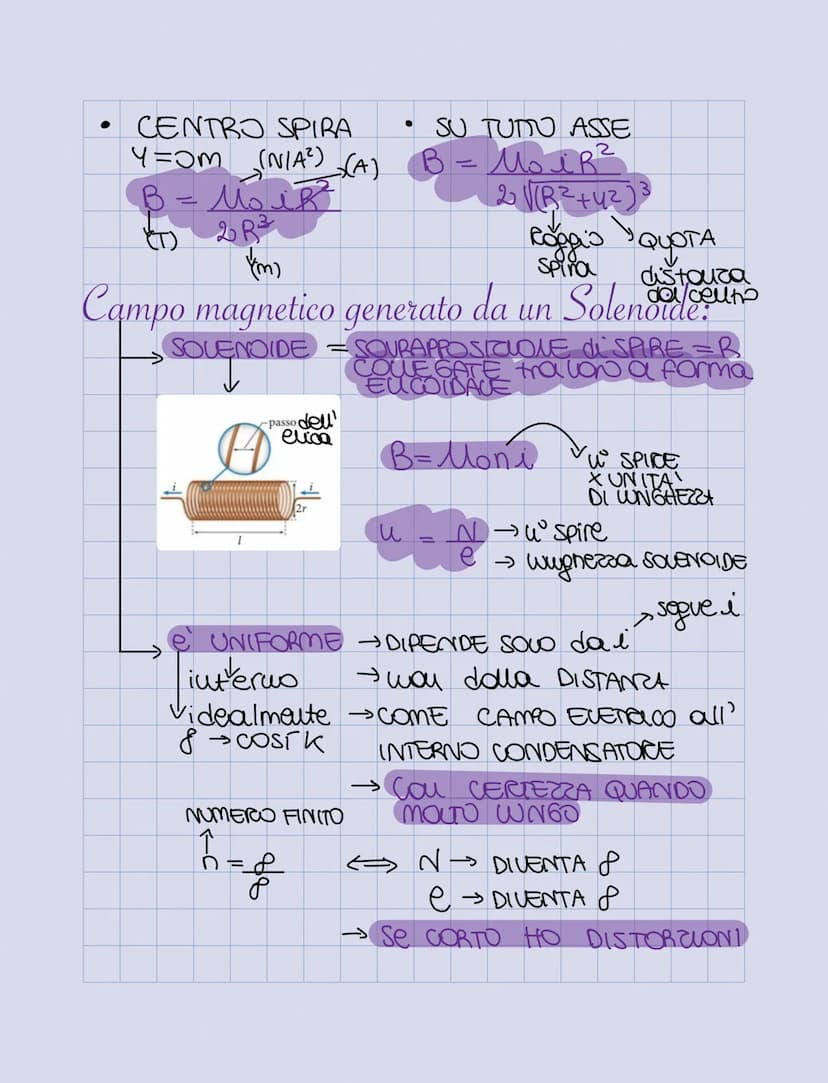 • CENTRO SPIRA
Y=0m (N/A²) (A)
B = μ₀iR²/2R³
(T)
(m)
• SU TUTTO ASSE
B = μ₀iR²/2√(R²+y²)³
Raggio spira
QUOTA
distanza dal centro
Campo magnetico generato da un Solenoide:
→ SOLENOIDE = SOVRAPPOSIZIONE di SPIRE = R
COLLEGATE tra loro a forma
ELICOIDALE
passo dell'
elica
i i
2r
l
B=μ₀ni
n° SPIRE
X UNITÀ
DI LUNGHEZZA
n = N/l → n° spire
→ lunghezza SOLENOIDE
→ è UNIFORME → DIPENDE SOLO da i → segue i
interno → non dalla DISTANZA
idealmente → COME CAMPO ELETTRICO all'
∞ → COST K INTERNO CONDENSATORE
→ CON CERTEZZA QUANDO
MOLTO LUNGO
NUMERO FINITO
↑
n = ∞/∞ ⟺ N → DIVENTA ∞
l → DIVENTA ∞
→ SE CORTO HO DISTORZIONI